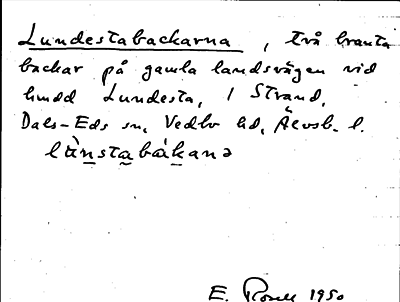 Lundestabackarna, två branta
backar på gamla landsvägen vid
hmdd Lundesta, 1 Strand,
Dals-Eds sn, Vedbo hd, Älvsb. l.
lùnstabákanə
E. 1950